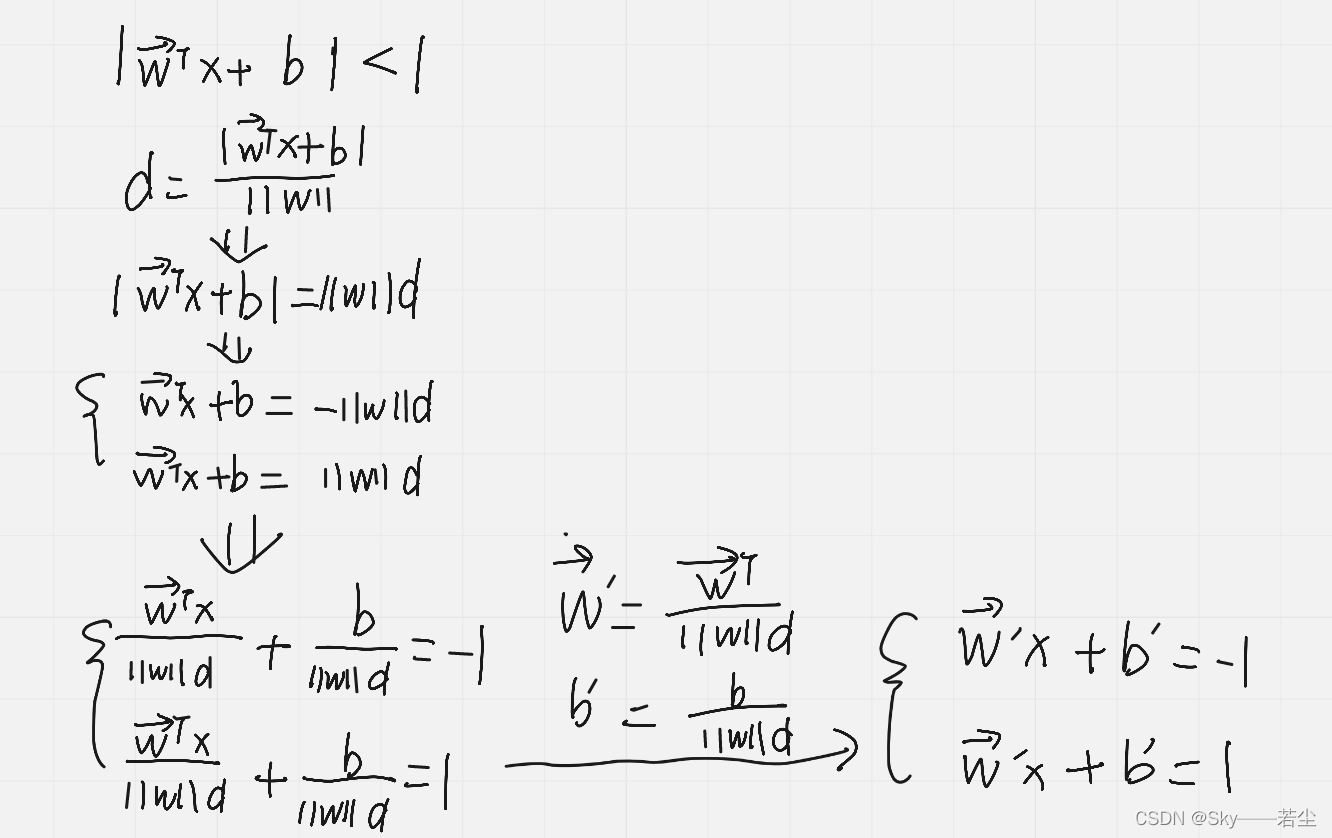 |w⃗ᵀx + b| < 1
d = |w⃗ᵀx+b| / ||w||
⇓
|w⃗ᵀx+b| = ||w||d
⇓
{ w⃗ᵀx+b = -||w||d
w⃗ᵀx+b = ||w||d
⇓
{ w⃗ᵀx / ||w||d + b / ||w||d = -1
w⃗ᵀx / ||w||d + b / ||w||d = 1
w⃗′ = w⃗ᵀ / ||w||d
b′ = b / ||w||d
→
{ w⃗′x + b′ = -1
w⃗′x + b′ = 1
CSDN @Sky——若尘